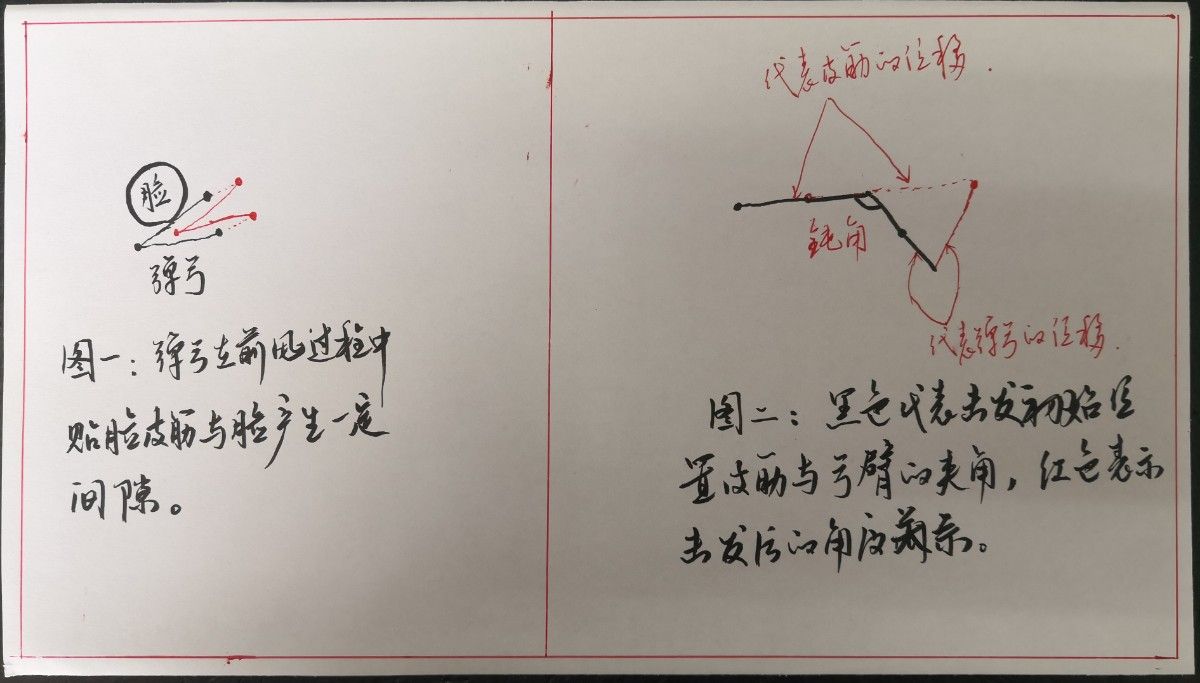 脸
弹弓
图一：弹弓在前甩过程中
贴脸皮筋与脸产生一定
间隙。
代表皮筋的位移.
钝角
代表弹弓的位移.
图二：黑色代表击发初始位
置皮筋与弓臂的夹角，红色表示
击发后的角度